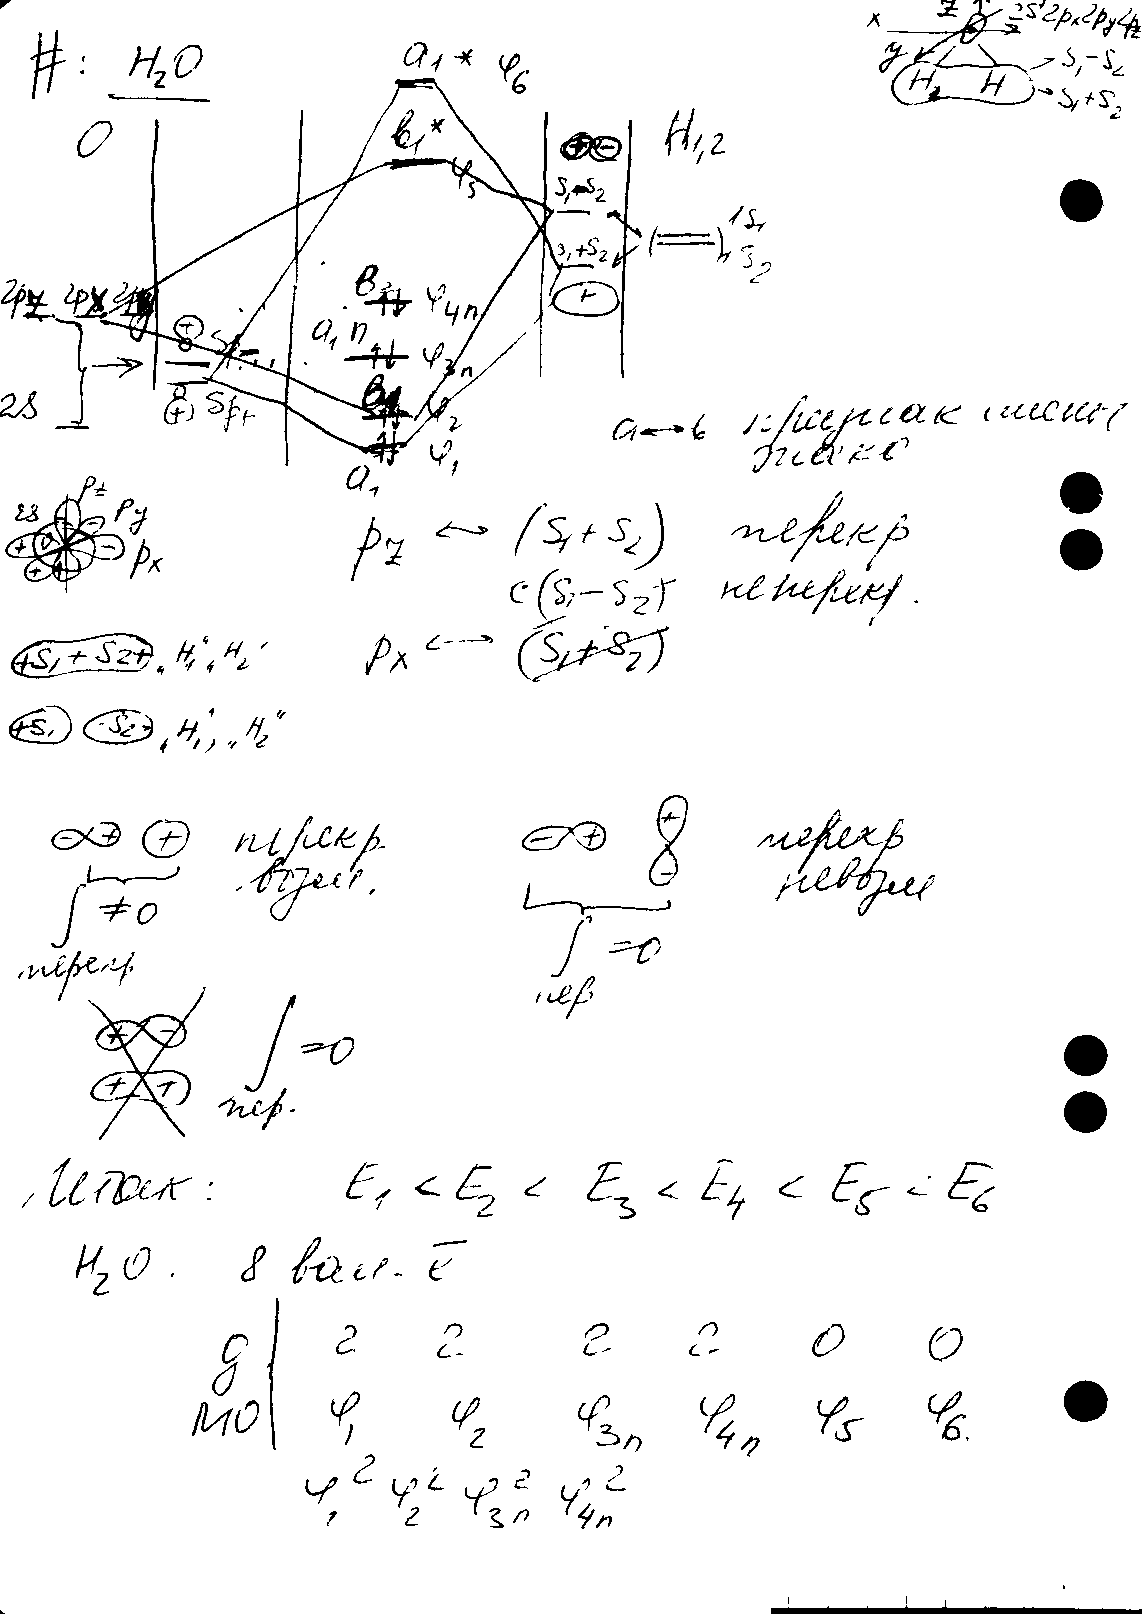 #: H₂O
a₁* φ₆
x z 2s 2px 2py 2pz
y H H S₁-S₂
S₁+S₂
O
b₁* φ₅
⊕⊖ H₁,₂
S₁-S₂
S₁+S₂
(=) 1S₁
1S₂
+
2pz 2px 2py
Sp-
b₂ φ₄n
a₁n φ₃n
2s
Sp+
b₁ φ₂
φ₁
a₁
a ↔ b признак смены
знака
pz
2s py
px
pz ↔ (S₁+S₂) перекр
с (S₁-S₂) неперекр.
+S₁+S₂+ "H₁", "H₂"
px ↔ (S₁+S₂)
+S₁ -S₂- "H₁", "H₂"
- + + перекр.
возм.
∫ ≠0
перекр
- + + - перекр
невозм
∫ =0
пер
+ -
+ +
∫ =0
пер.
Итак: E₁ < E₂ < E₃ < E₄ < E₅ < E₆
H₂O. 8 вал. ē
g 2 2 2 2 0 0
МО φ₁ φ₂ φ₃n φ₄n φ₅ φ₆.
φ₁² φ₂² φ₃n² φ₄n²